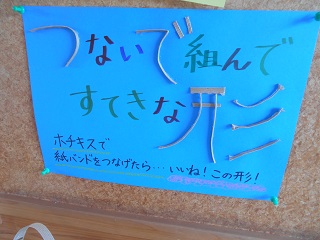 つないで組んで
すてきな形
ホチキスで
紙バンドをつなげたら…いいね!この形!